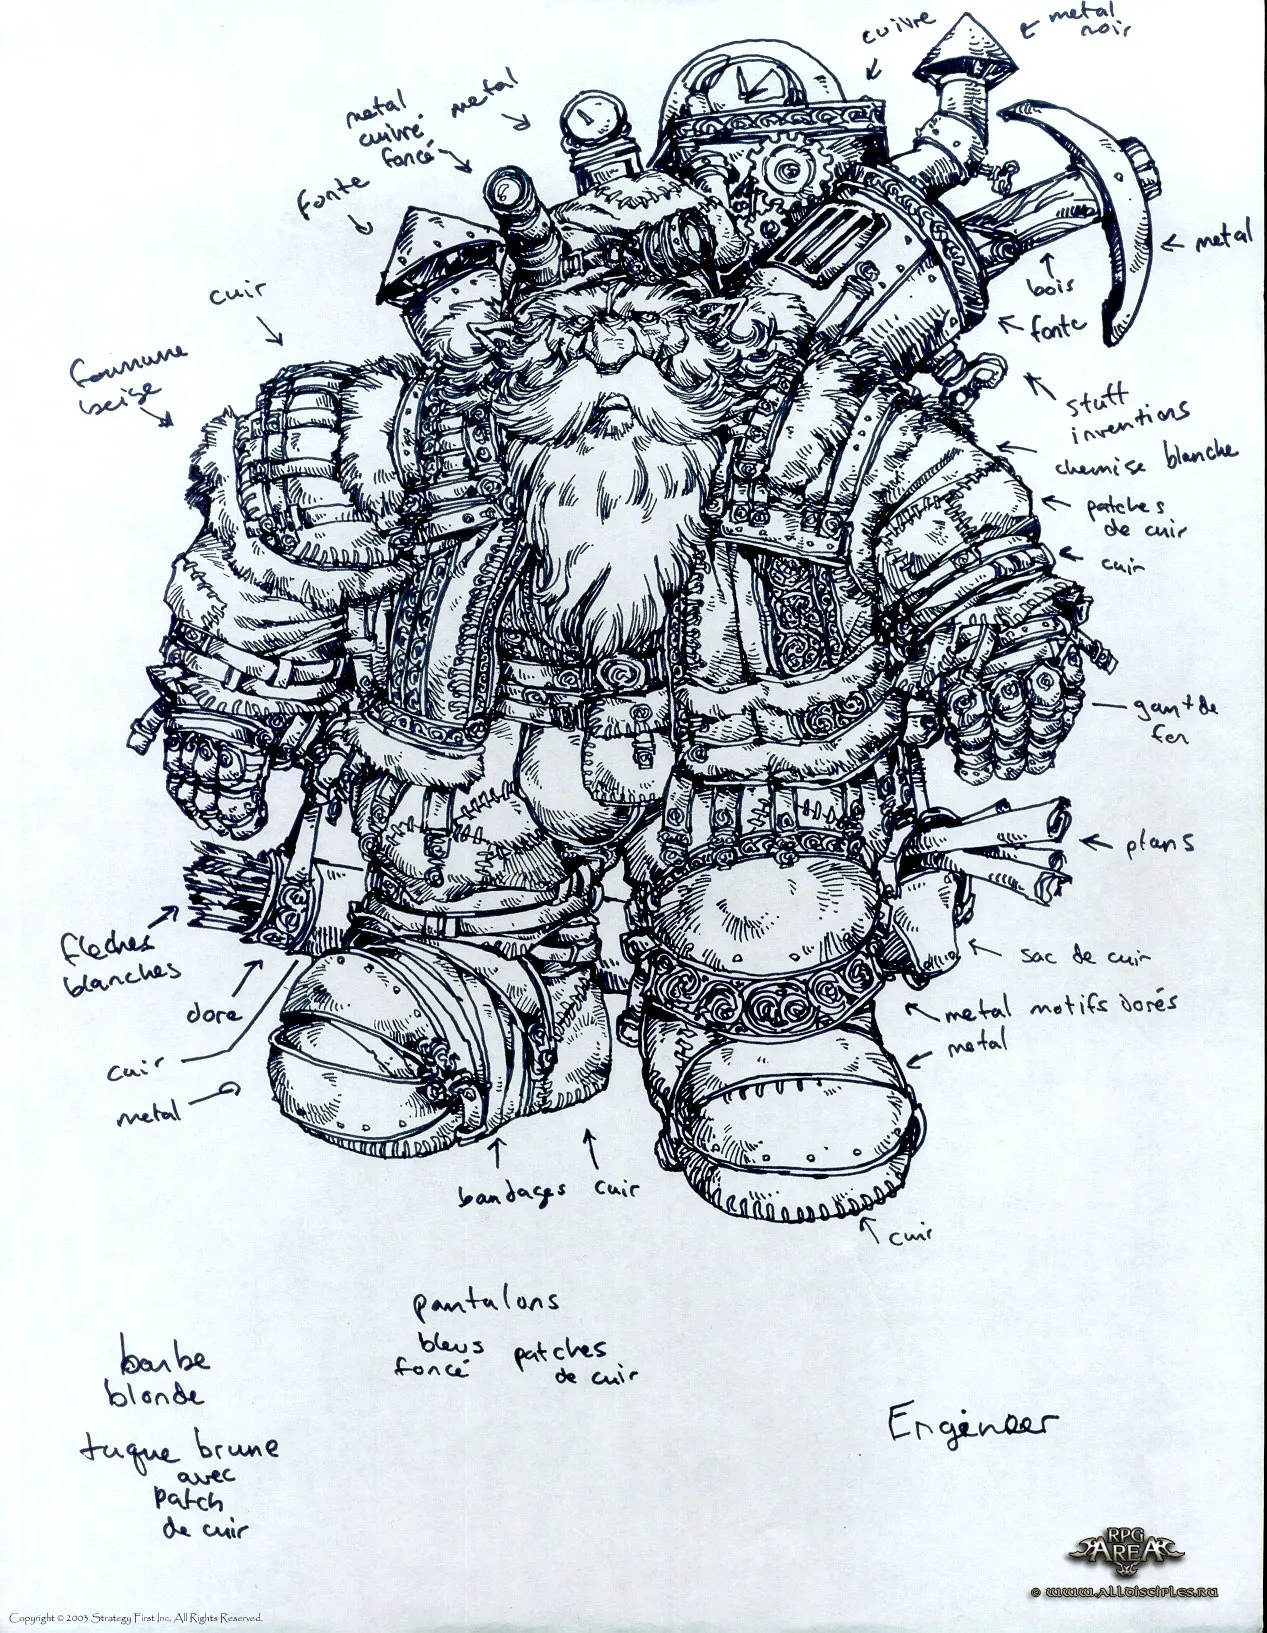 cuivre
metal
noir
metal
metal
cuivré
foncé
fonte
metal
bois
fonte
cuir
fourrure
beige
stuff
inventions
chemise blanche
patches
de cuir
cuir
gant de
fer
plans
fleches
blanches
dore
cuir
metal
sac de cuir
metal motifs dorés
metal
bandages
cuir
cuir
pantalons
bleus
foncé
patches
de cuir
barbe
blonde
tuque brune
avec
patch
de cuir
Engineer
RPG
AREA
© www.ALLDISCIPLES.RU
Copyright © 2003 Strategy First Inc. All Rights Reserved.